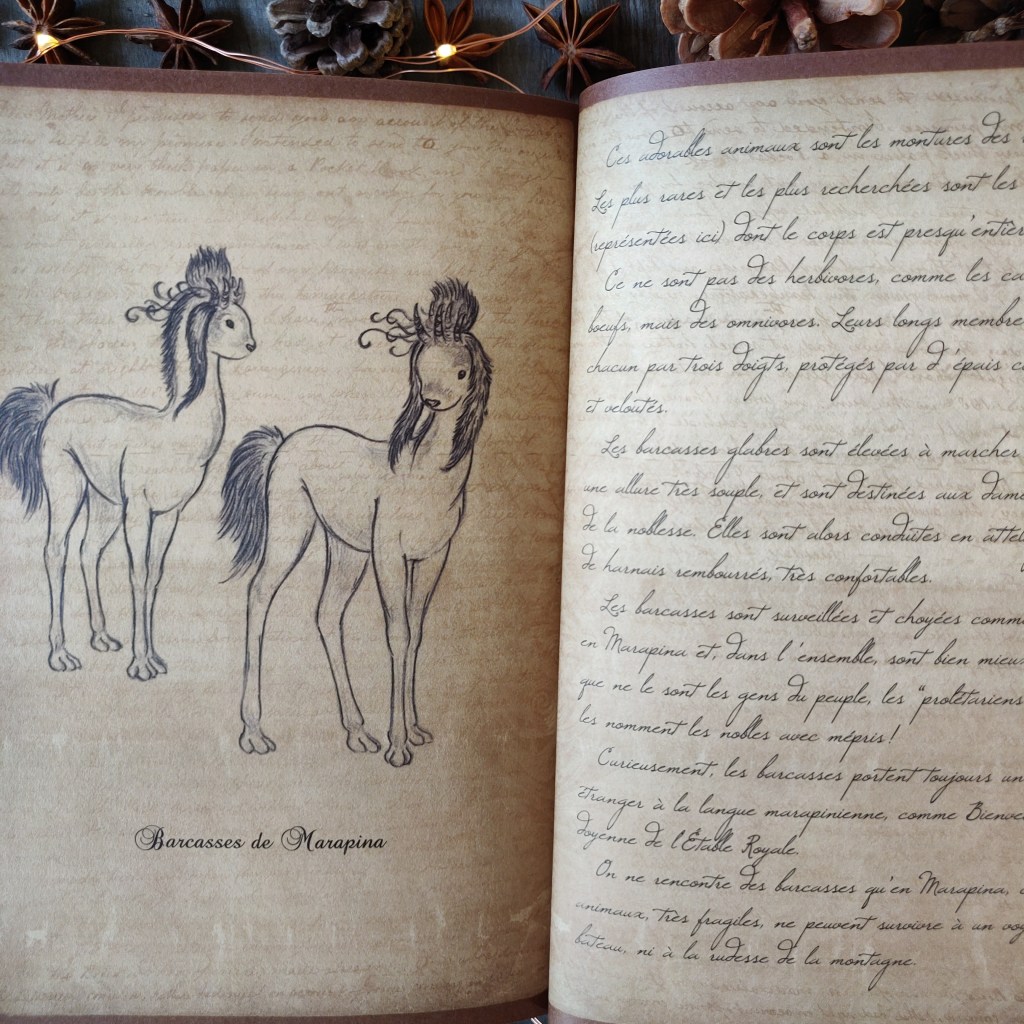 Barcasses de Marapina
Ces adorables animaux sont les montures des
Les plus rares et les plus recherchées sont les
(représentées ici) dont le corps est presqu'entièr
Ce ne sont pas des herbivores, comme les ca
boeufs, mais des omnivores. Leurs longs membre
chacun par trois doigts, protégés par d'épais co
et veloutés.
Les barcasses glabres sont élevées à marcher
une allure très souple, et sont destinées aux dame
de la noblesse. Elles sont alors conduites en attel
de harnais rembourrés, très confortables.
Les barcasses sont surveillées et choyées comm
en Marapina et, dans l'ensemble, sont bien mieux
que ne le sont les gens du peuple, les "prolétariens
les nomment les nobles avec mépris!
Curieusement, les barcasses portent toujours un
étranger à la langue marapinienne, comme Bienve
doyenne de l'Étable Royale.
On ne rencontre des barcasses qu'en Marapina,
animaux, très fragiles, ne peuvent survivre à un voy
bateau, ni à la rudesse de la montagne.